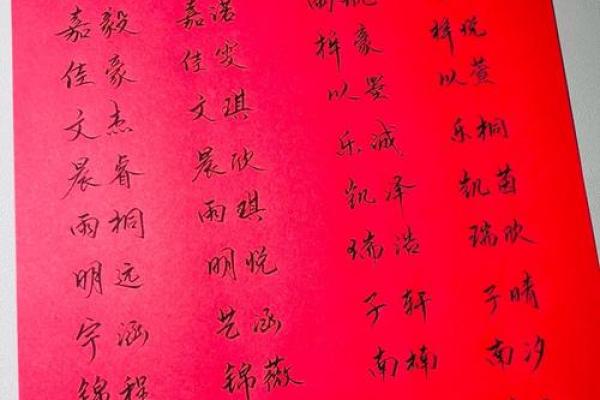 嘉毅 嘉诺
佳豪 佳雯 梓豪 梓悦
文杰 文琪 以墨 以萱
晨睿 晨欣 乐诚 乐桐
雨桐 雨琪 凯泽 凯茵
明远 明悦 瑞浩 瑞欣
宇涵 艺涵 子轩 子晴
锦程 锦薇 南楠 南汐